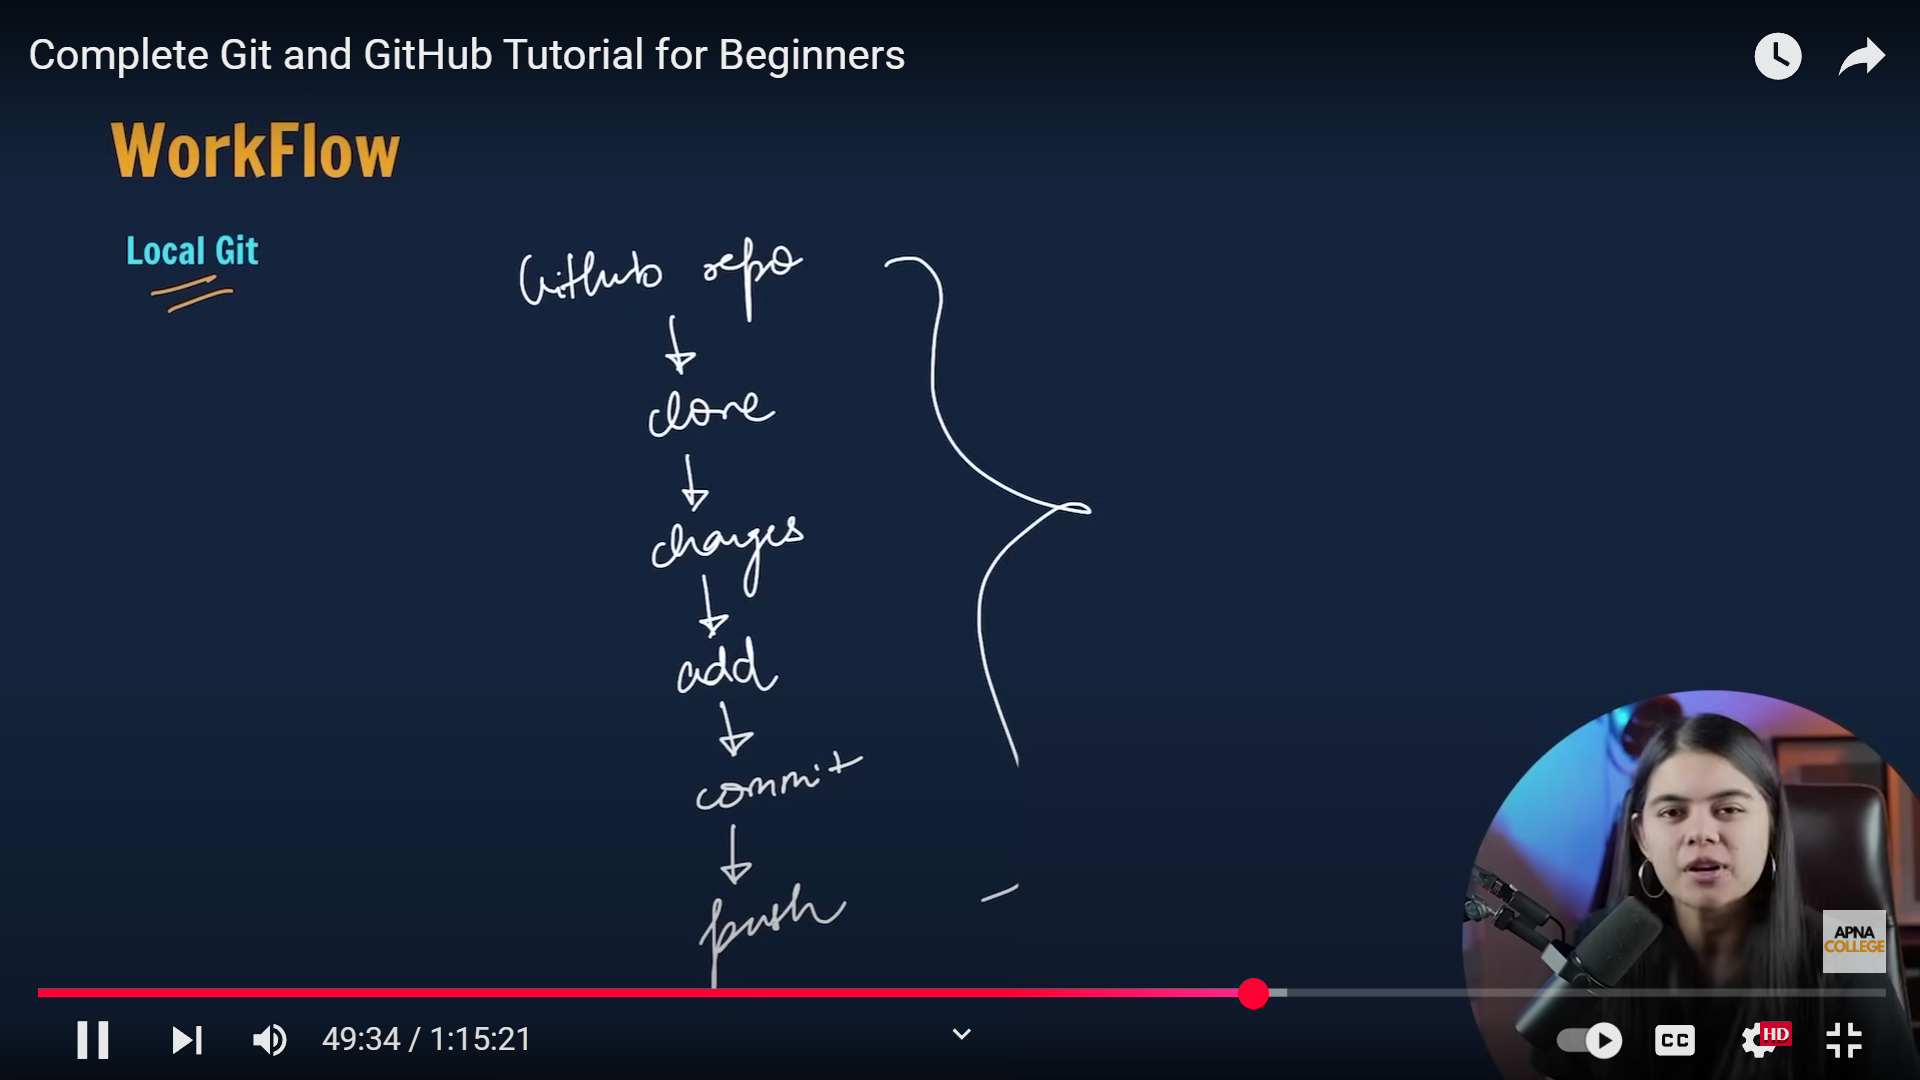 Complete Git and GitHub Tutorial for Beginners
WorkFlow
Local Git
GitHub repo
clone
changes
add
commit
push
APNA
COLLEGE
49:34 / 1:15:21
CC
HD